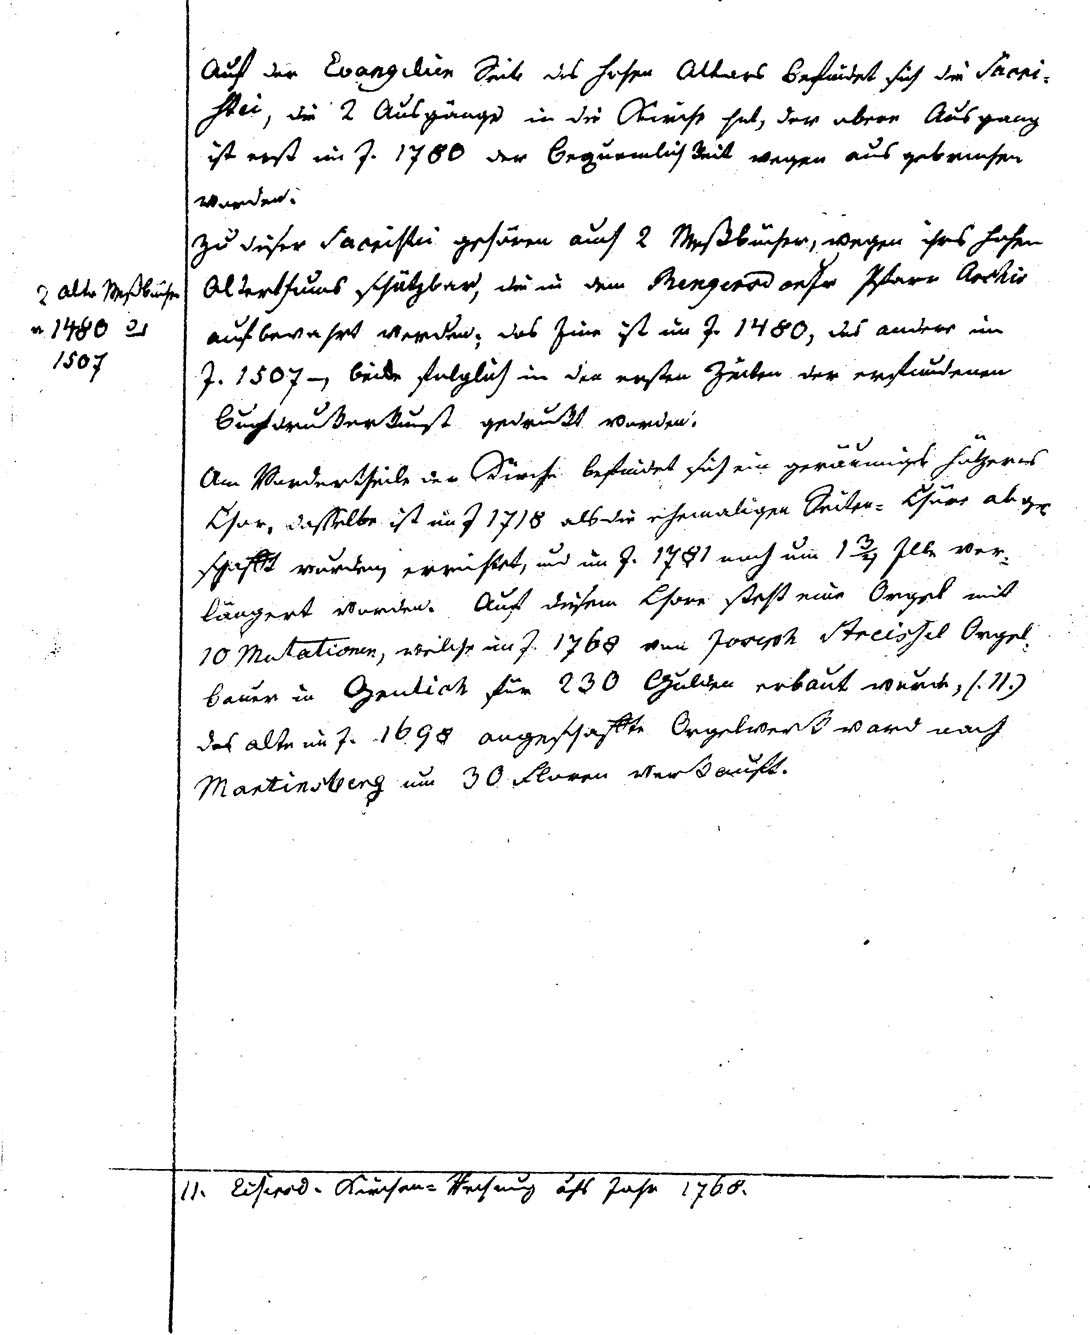 Auf der Evangelien Seite des hohen Altars befindet sich die Sacri-
stei, die 2 Ausgänge in die Kirche hat, der obere Ausgang
ist erst im J. 1780 der Bequemlichkeit wegen ausgebrochen
worden.
Zu dieser Sacristei gehören auch 2 Meßbücher, wegen ihres hohen
2 alte Meßbücher
v. 1480 u
1507
Alterthums schätzbar, die in dem Pfarr Archiv
aufbewahrt werden; das Eine ist im J. 1480, das andere im
J. 1507 –, beide folglich in den ersten Zeiten der erfundenen
Buchdrukerkunst gedrukt worden.
Am Vordertheile der Kirche befindet sich ein geräumiges hölzernes
Chor, dasselbe ist im J 1718 als die ehemaligen Seiten= Chöre abge-
schafft wurden, errichtet, und im J. 1781 noch um 1 3/4 Elle ver-
längert worden. Auf diesem Chore steht eine Orgel mit
10 Mutationen, welche im J. 1768 von Joseph Orgel-
bauer in für 230 Gulden erbaut wurde, (. 11.)
das alte im J. 1698 angeschaffte Orgelwerk ward nach
Martinsberg um 30 Floren verkauft.
11. Kirchen= Rechnung aufs Jahr 1768.